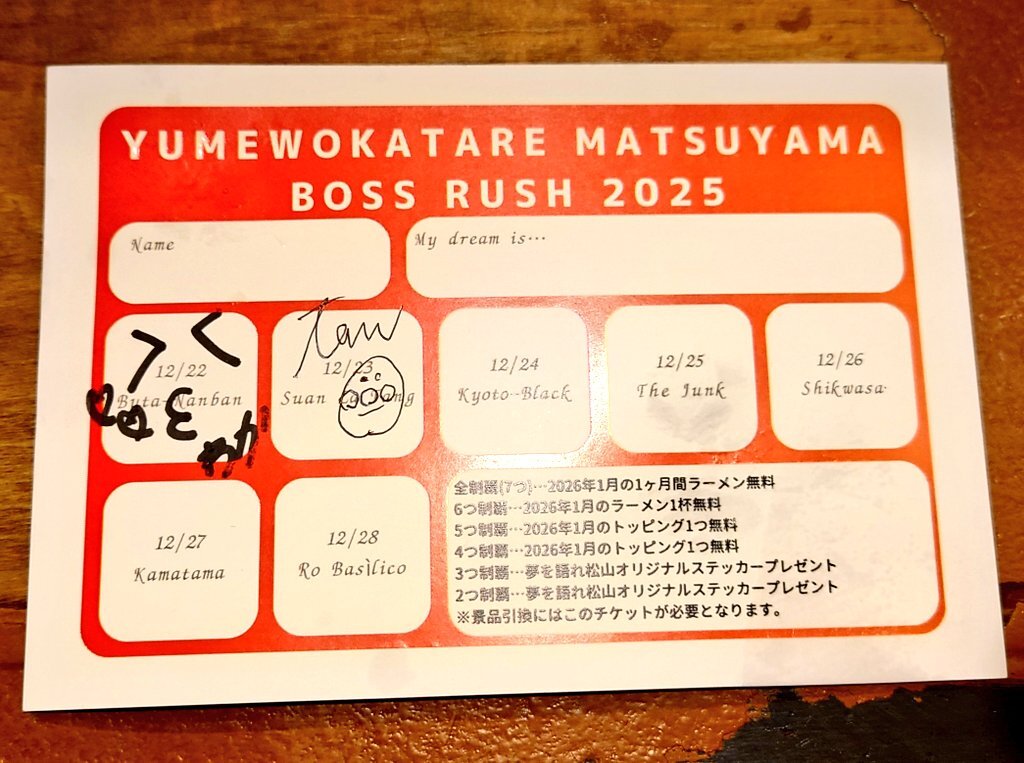 YUMEWOKATARE MATSUYAMA
BOSS RUSH 2025
Name
My dream is…
12/22
Buta-Nanban
12/23
Suan La Tang
12/24
Kyoto-Black
12/25
The Junk
12/26
Shikwasa
12/27
Kamatama
12/28
Ro Basìlico
全制覇(7つ)…2026年1月の1ヶ月間ラーメン無料
6つ制覇…2026年1月のラーメン1杯無料
5つ制覇…2026年1月のトッピング1つ無料
4つ制覇…2026年1月のトッピング1つ無料
3つ制覇…夢を語れ松山オリジナルステッカープレゼント
2つ制覇…夢を語れ松山オリジナルステッカープレゼント
※景品引換にはこのチケットが必要となります。